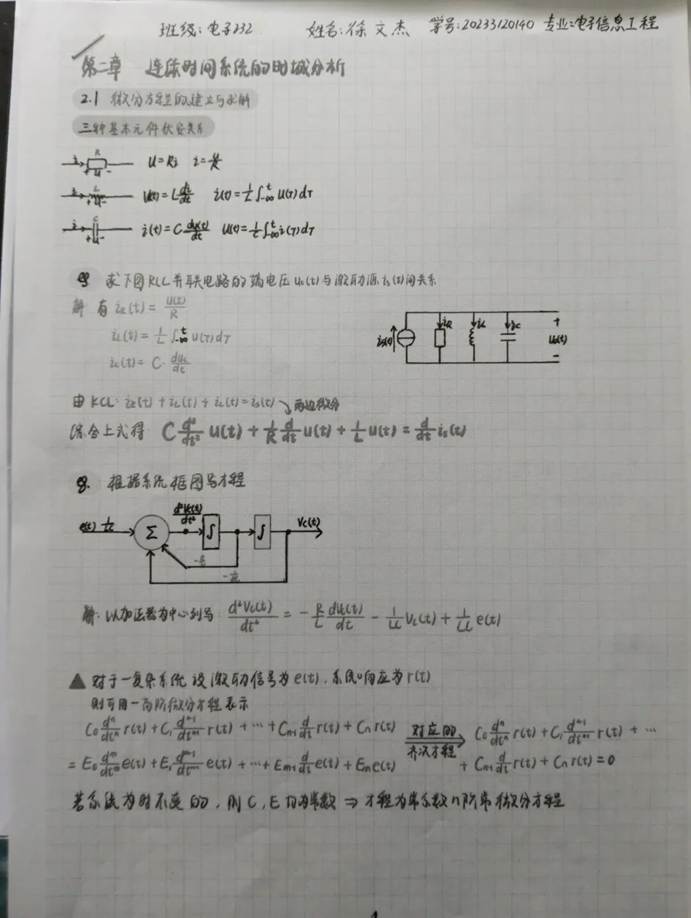 班级:电子232 姓名:徐文杰 学号:20233120140 专业:电子信息工程
第二章 连续时间系统的时域分析
2.1 微分方程的建立与求解
三种基本元件伏安关系
R
i + u - u=Ri i=u/R
L
i + u - u(t)=L di/dt i(t)=1/L ∫_{-∞}^{t} u(τ)dτ
C
i + u - i(t)=C du(t)/dt u(t)=1/C ∫_{-∞}^{t} i(τ)dτ
例 求下图RLC并联电路的端电压u(t)与激励源is(t)间关系
解 有 iR(t)=u(t)/R
iL(t)=1/L ∫_{-∞}^{t} u(τ)dτ
iC(t)=C·du/dt
is(t) iR iL iC + u(t) -
由KCL: iR(t)+iL(t)+iC(t)=is(t) 两边微分
综合上式得 C d²/dt² u(t)+1/R d/dt u(t)+1/L u(t)=d/dt is(t)
例. 根据系统框图写方程
e(t) 1/LC Σ d²Vc(t)/dt² ∫ ∫ Vc(t)
-R/L
-1/LC
解:以加法器为中心列写 d²Vc(t)/dt² = -R/L dVc(t)/dt - 1/LC Vc(t)+1/LC e(t)
▲ 对于一复杂系统 设激励信号为e(t),系统响应为r(t)
则可用一高阶微分方程表示
C₀ dⁿ/dtⁿ r(t)+C₁ dⁿ⁻¹/dtⁿ⁻¹ r(t)+…+Cn-1 d/dt r(t)+Cn r(t)
= E₀ dᵐ/dtᵐ e(t)+E₁ dᵐ⁻¹/dtᵐ⁻¹ e(t)+…+Em-1 d/dt e(t)+Em e(t)
对应的
齐次方程
C₀ dⁿ/dtⁿ r(t)+C₁ dⁿ⁻¹/dtⁿ⁻¹ r(t)+…
+Cn-1 d/dt r(t)+Cn r(t)=0
若系统为时不变的,则C,E均为常数 ⇒ 方程为常系数n阶常微分方程